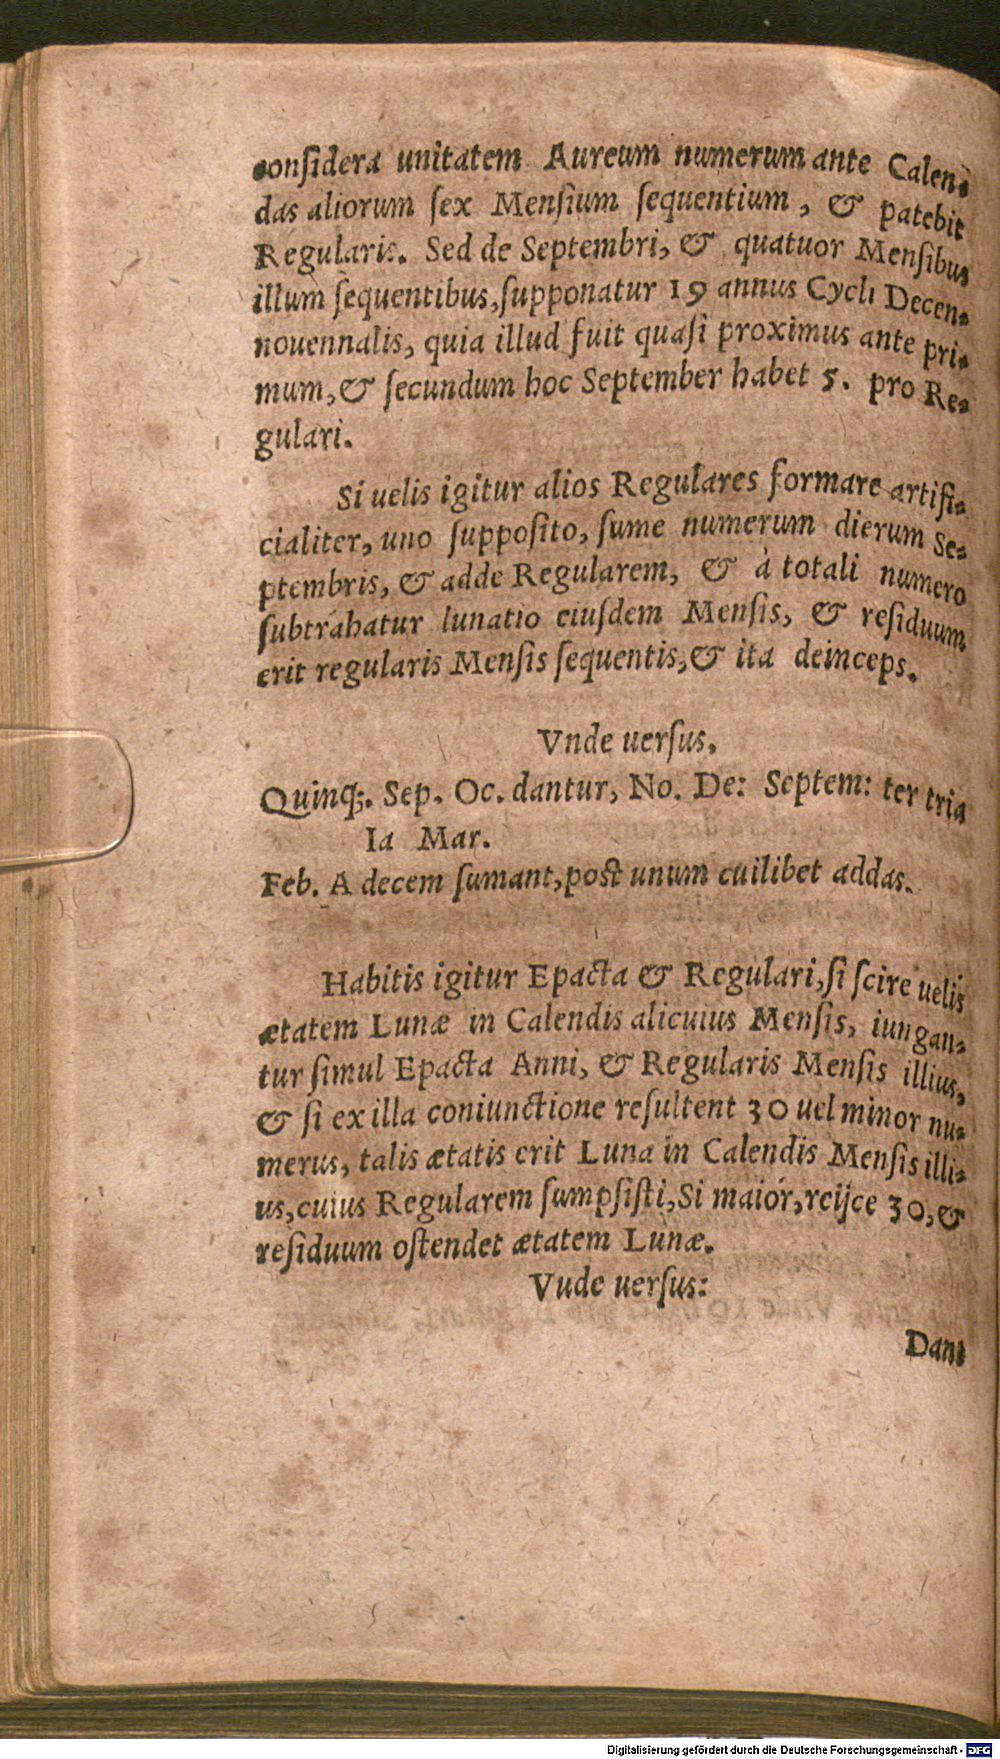 conſidera unitatem Aureum numerum ante Calen⸗
das aliorum ſex Menſium ſequentium, & patebit
Regularis. Sed de Septembri, & quatuor Menſibus
illum ſequentibus, ſupponatur 19 annus Cycli Decen⸗
nouennalis, quia illud fuit quaſi proximus ante pri⸗
mum, & ſecundum hoc September habet 5. pro Re⸗
gulari.
Si uelis igitur alios Regulares formare artifi⸗
cialiter, uno ſuppoſito, ſume numerum dierum Se⸗
ptembris, & adde Regularem, & à totali numero
ſubtrahatur lunatio eiuſdem Menſis, & reſiduum
erit regularis Menſis ſequentis, & ita deinceps.
Vnde uerſus.
Quinq;. Sep. Oc. dantur, No. De: Septem: ter tria
Ia Mar.
Feb. A decem ſumant, poſt unum cuilibet addas.
Habitis igitur Epacta & Regulari, ſi ſcire uelis
ætatem Lunæ in Calendis alicuius Menſis, iungan⸗
tur ſimul Epacta Anni, & Regularis Menſis illius,
& ſi ex illa coniunctione reſultent 30 uel minor nu⸗
merus, talis ætatis erit Luna in Calendis Menſis illi⸗
us, cuius Regularem ſumpſiſti, Si maiór, reijce 30, &
reſiduum oſtendet ætatem Lunæ.
Vude uerſus:
Dant
Digitalisierung gefördert durch die Deutsche Forschungsgemeinschaft - DFG